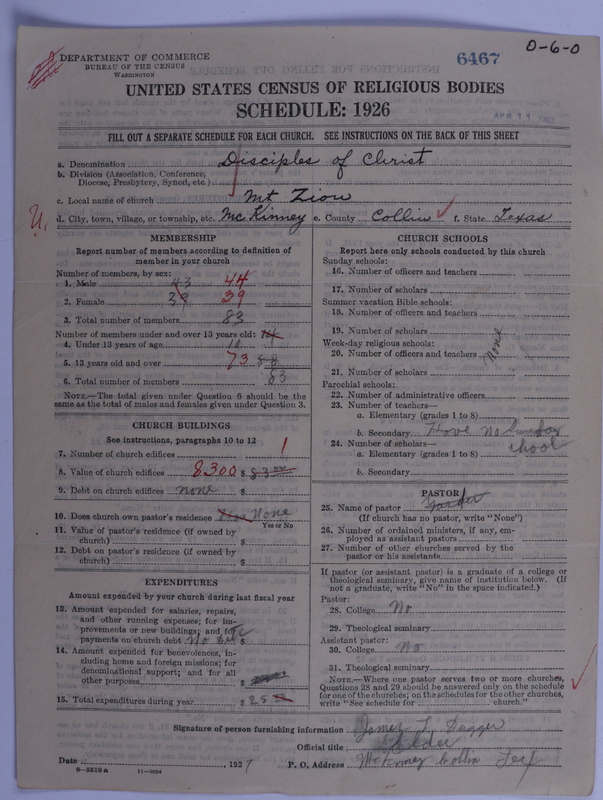 DEPARTMENT OF COMMERCE
BUREAU OF THE CENSUS
WASHINGTON
6467
0-6-0
UNITED STATES CENSUS OF RELIGIOUS BODIES
SCHEDULE: 1926
FILL OUT A SEPARATE SCHEDULE FOR EACH CHURCH. SEE INSTRUCTIONS ON THE BACK OF THIS SHEET
a. Denomination Disciples of Christ
b. Division (Association, Conference, Diocese, Presbytery, Synod, etc.)
c. Local name of church Mt Zion
U.
d. City, town, village, or township, etc. McKinney e. County Collin f. State Texas
MEMBERSHIP
Report number of members according to definition of
member in your church
Number of members, by sex:
1. Male 43 44
2. Female 39 39
3. Total number of members 83
Number of members under and over 13 years old:
4. Under 13 years of age 10
5. 13 years old and over 73
6. Total number of members 83
NOTE.—The total given under Question 6 should be the
same as the total of males and females given under Question 3.
CHURCH BUILDINGS
See instructions, paragraphs 10 to 12
7. Number of church edifices 1
8. Value of church edifices 8300 $ 8300
9. Debt on church edifices none
10. Does church own pastor's residence None
Yes or No
11. Value of pastor's residence (if owned by
church) $
12. Debt on pastor's residence (if owned by
church) $
EXPENDITURES
Amount expended by your church during last fiscal year
13. Amount expended for salaries, repairs,
and other running expenses; for im-
provements or new buildings; and for
payments on church debt $
14. Amount expended for benevolences, in-
cluding home and foreign missions; for
denominational support; and for all
other purposes $
15. Total expenditures during year $ 25
CHURCH SCHOOLS
Report here only schools conducted by this church
Sunday schools:
16. Number of officers and teachers
17. Number of scholars
Summer vacation Bible schools:
18. Number of officers and teachers
19. Number of scholars
Week-day religious schools:
20. Number of officers and teachers None
21. Number of scholars
Parochial schools:
22. Number of administrative officers
23. Number of teachers—
a. Elementary (grades 1 to 8)
b. Secondary Have no Sunday
24. Number of scholars— chool
a. Elementary (grades 1 to 8)
b. Secondary
PASTOR
25. Name of pastor
(If church has no pastor, write "None")
26. Number of ordained ministers, if any, em-
ployed as assistant pastors
27. Number of other churches served by the
pastor or his assistants
If pastor (or assistant pastor) is a graduate of a college or
theological seminary, give name of institution below. (If
not a graduate, write "No" in the space indicated.)
Pastor:
28. College No
29. Theological seminary
Assistant pastor:
30. College No
31. Theological seminary
NOTE.—Where one pastor serves two or more churches,
Questions 28 and 29 should be answered only on the schedule
for one of the churches; on the schedules for the other churches,
write "See schedule for church."
Signature of person furnishing information James L. Dugger
Official title Elder
Date , 1927 P. O. Address McKinney Collin Tex
8—5518a 11—9394